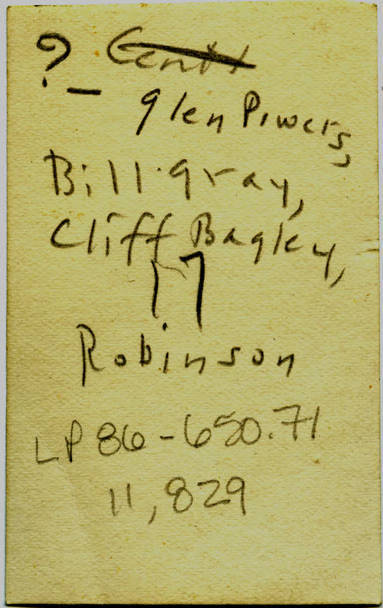 ?-
glen Powers,
Bill gray,
Cliff Bagley,
17
Robinson
LP 86-650.71
11,829